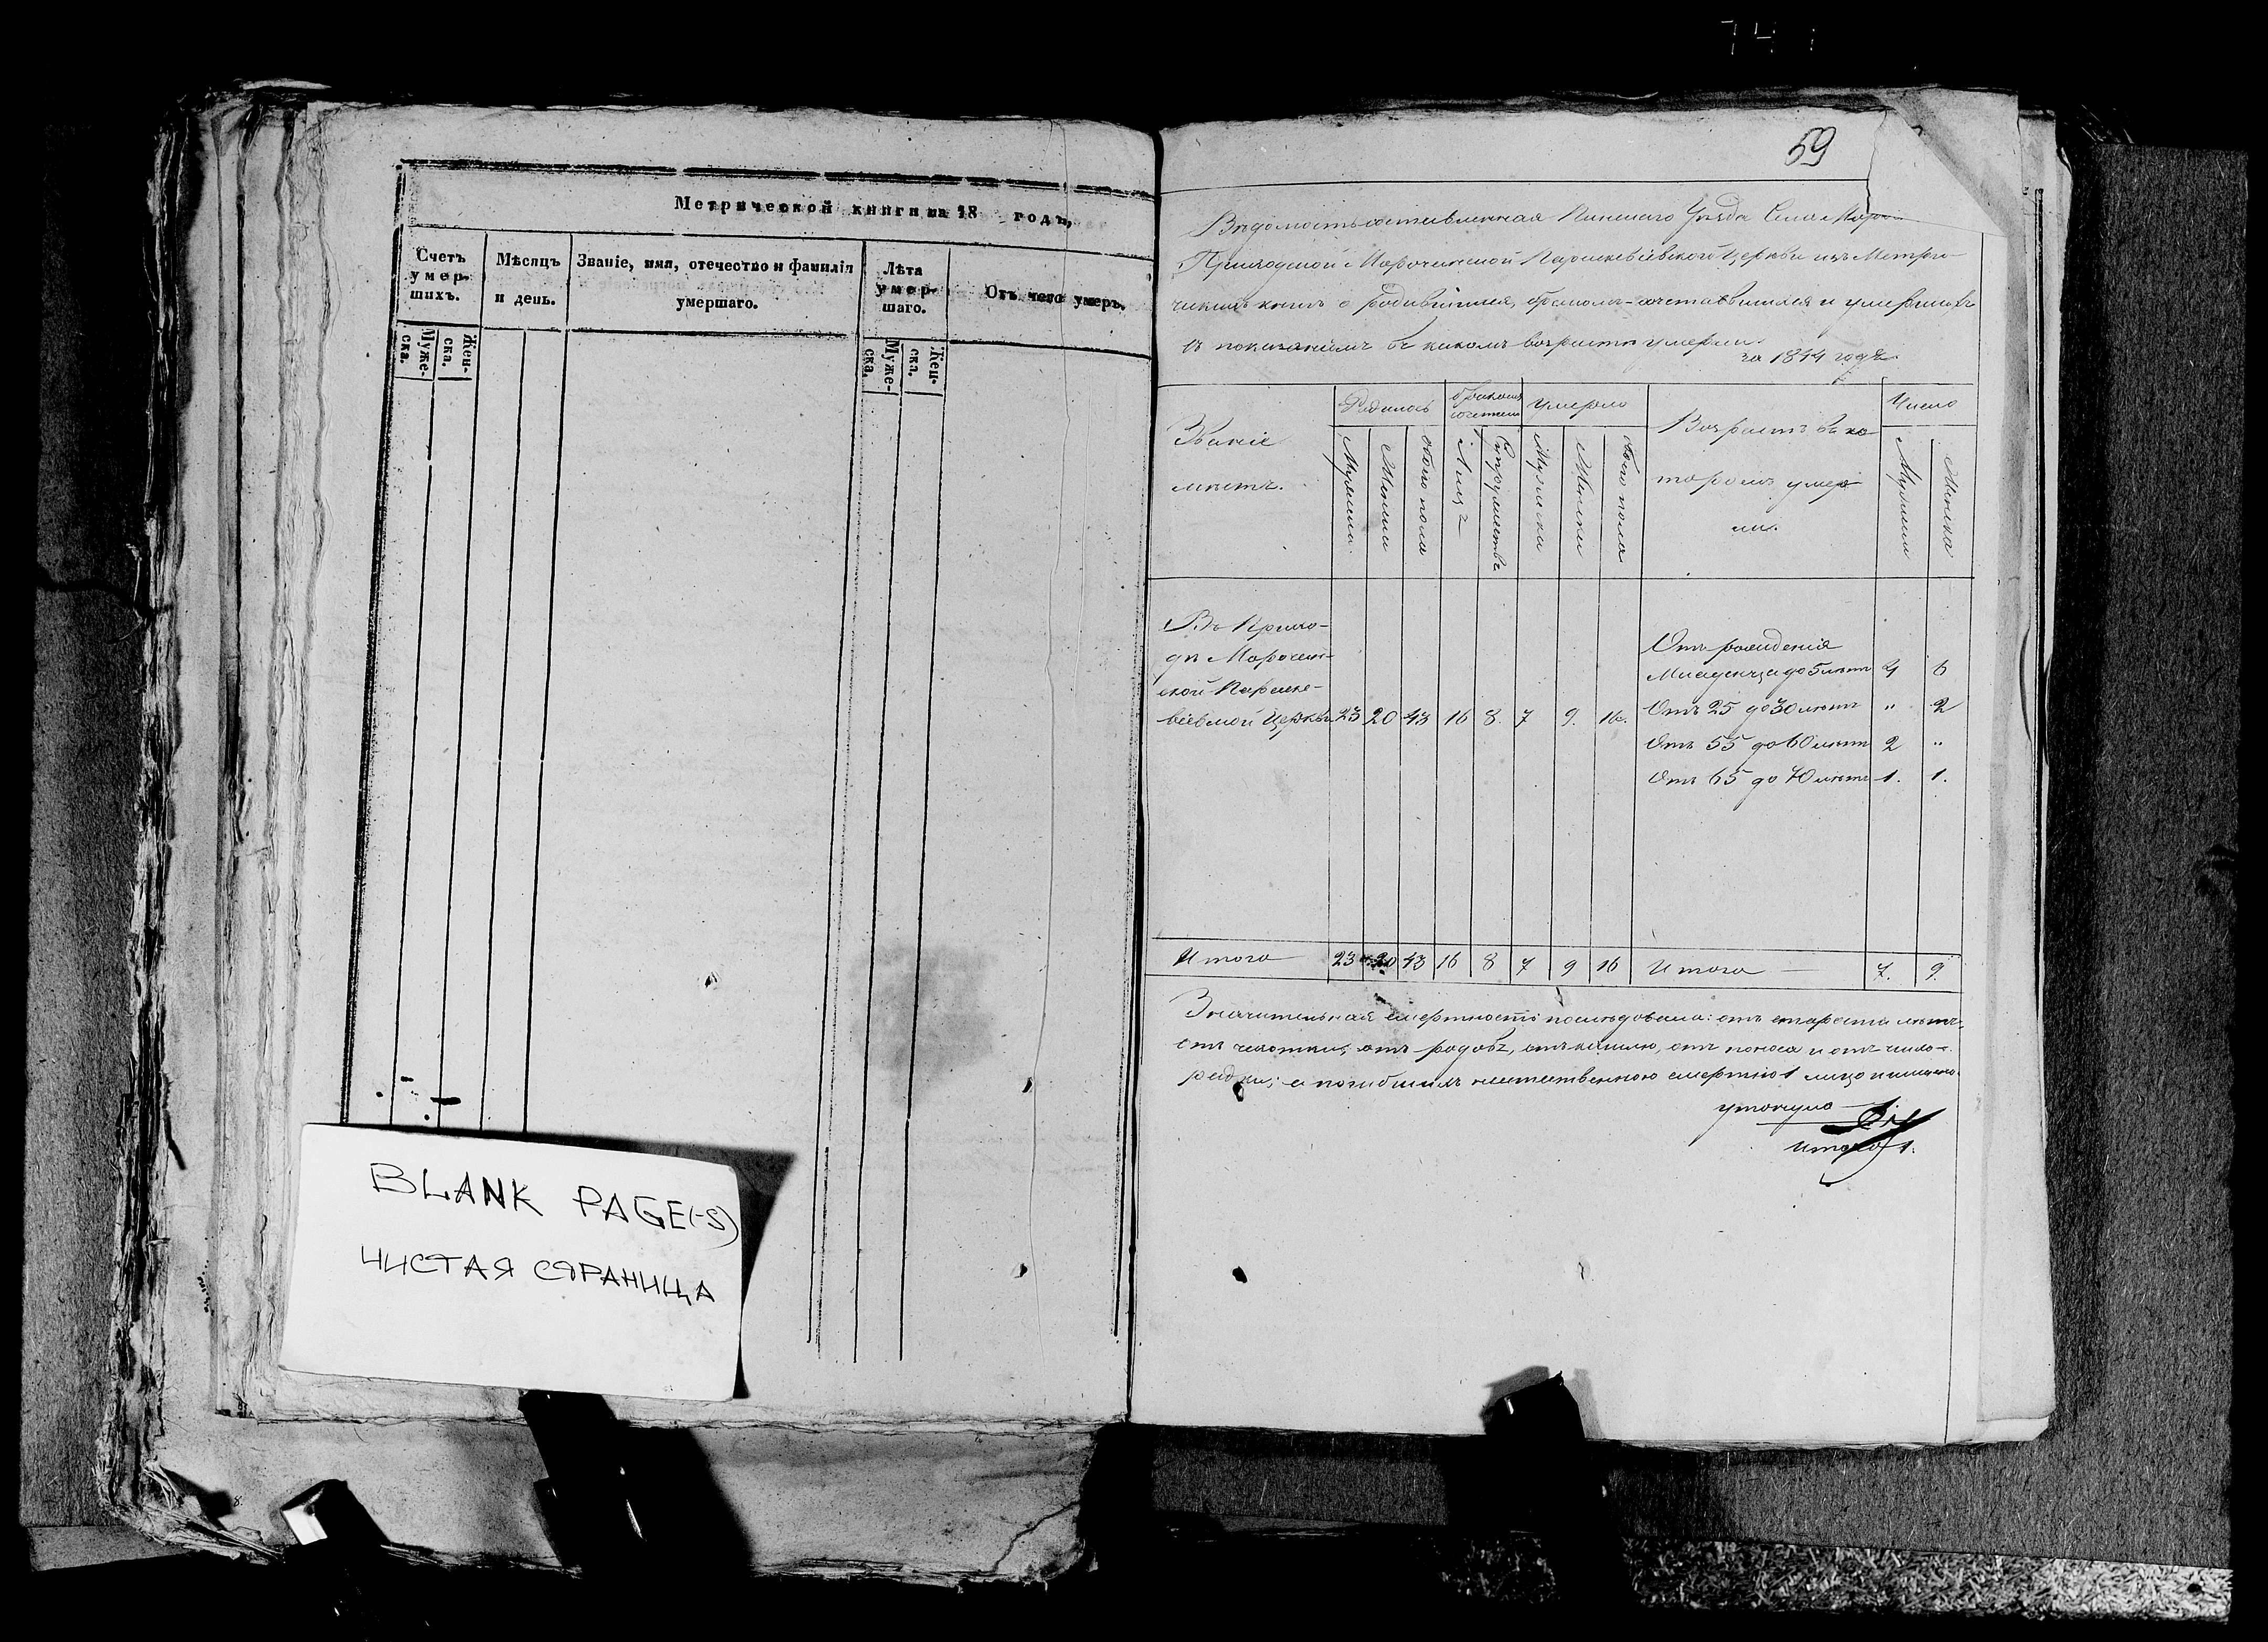 741
Метрической книги на 18 годъ,
Счетъ умер-шихъ.
Мѣсяцъ и день.
Званіе, имя, отечество и фамилія умершаго.
Лѣта умер-шаго.
Отъ чего умеръ.
Муже-ска.
Жен-ска.
Муже-ска.
Жен-ска.
BLANK PAGE(-S)
ЧИСТАЯ СТРАНИЦА
59
Вѣдомость составленная Пинскаго Уѣзда Села
Приходской Мороченской Параскевіевской Церкви изъ Метри-
ческихъ книгъ о родившихся, бракомъ-сочетавшихся и умершихъ
съ показаніемъ въ какомъ возрастѣ умерли.
за 1844 годъ.
Званіе мѣстъ.
Родилось
бракомъ сочетан
умерло
Возрастъ въ ко
торомъ умер
ли.
Число
Мужеска
Женска
обоего пола
Лицъ
Супружествъ
Мужеска
Женска
обоего пола
Мужеска
Женска
Въ Прихо-
дѣ Морочен-
ской Параске-
віевской Церкви 23 20 43 16 8. 7 9. 16.
Отъ рожденія
Младенца до 5 лѣтъ 4 6
Отъ 25 до 30 лѣтъ " 2
Отъ 55 до 60 лѣтъ 2 "
Отъ 65 до 70 лѣтъ 1. 1.
Итого 23 20 43 16 8 7 9 16 Итого 7. 9.
Значительная смертность послѣдовала: отъ старости лѣтъ,
отъ чахотки, отъ родовъ, отъ кашлю, отъ поноса и отъ лихо-
радки; а погибшихъ неестественною смертію 1 лицо
утонуло
Итого 1.